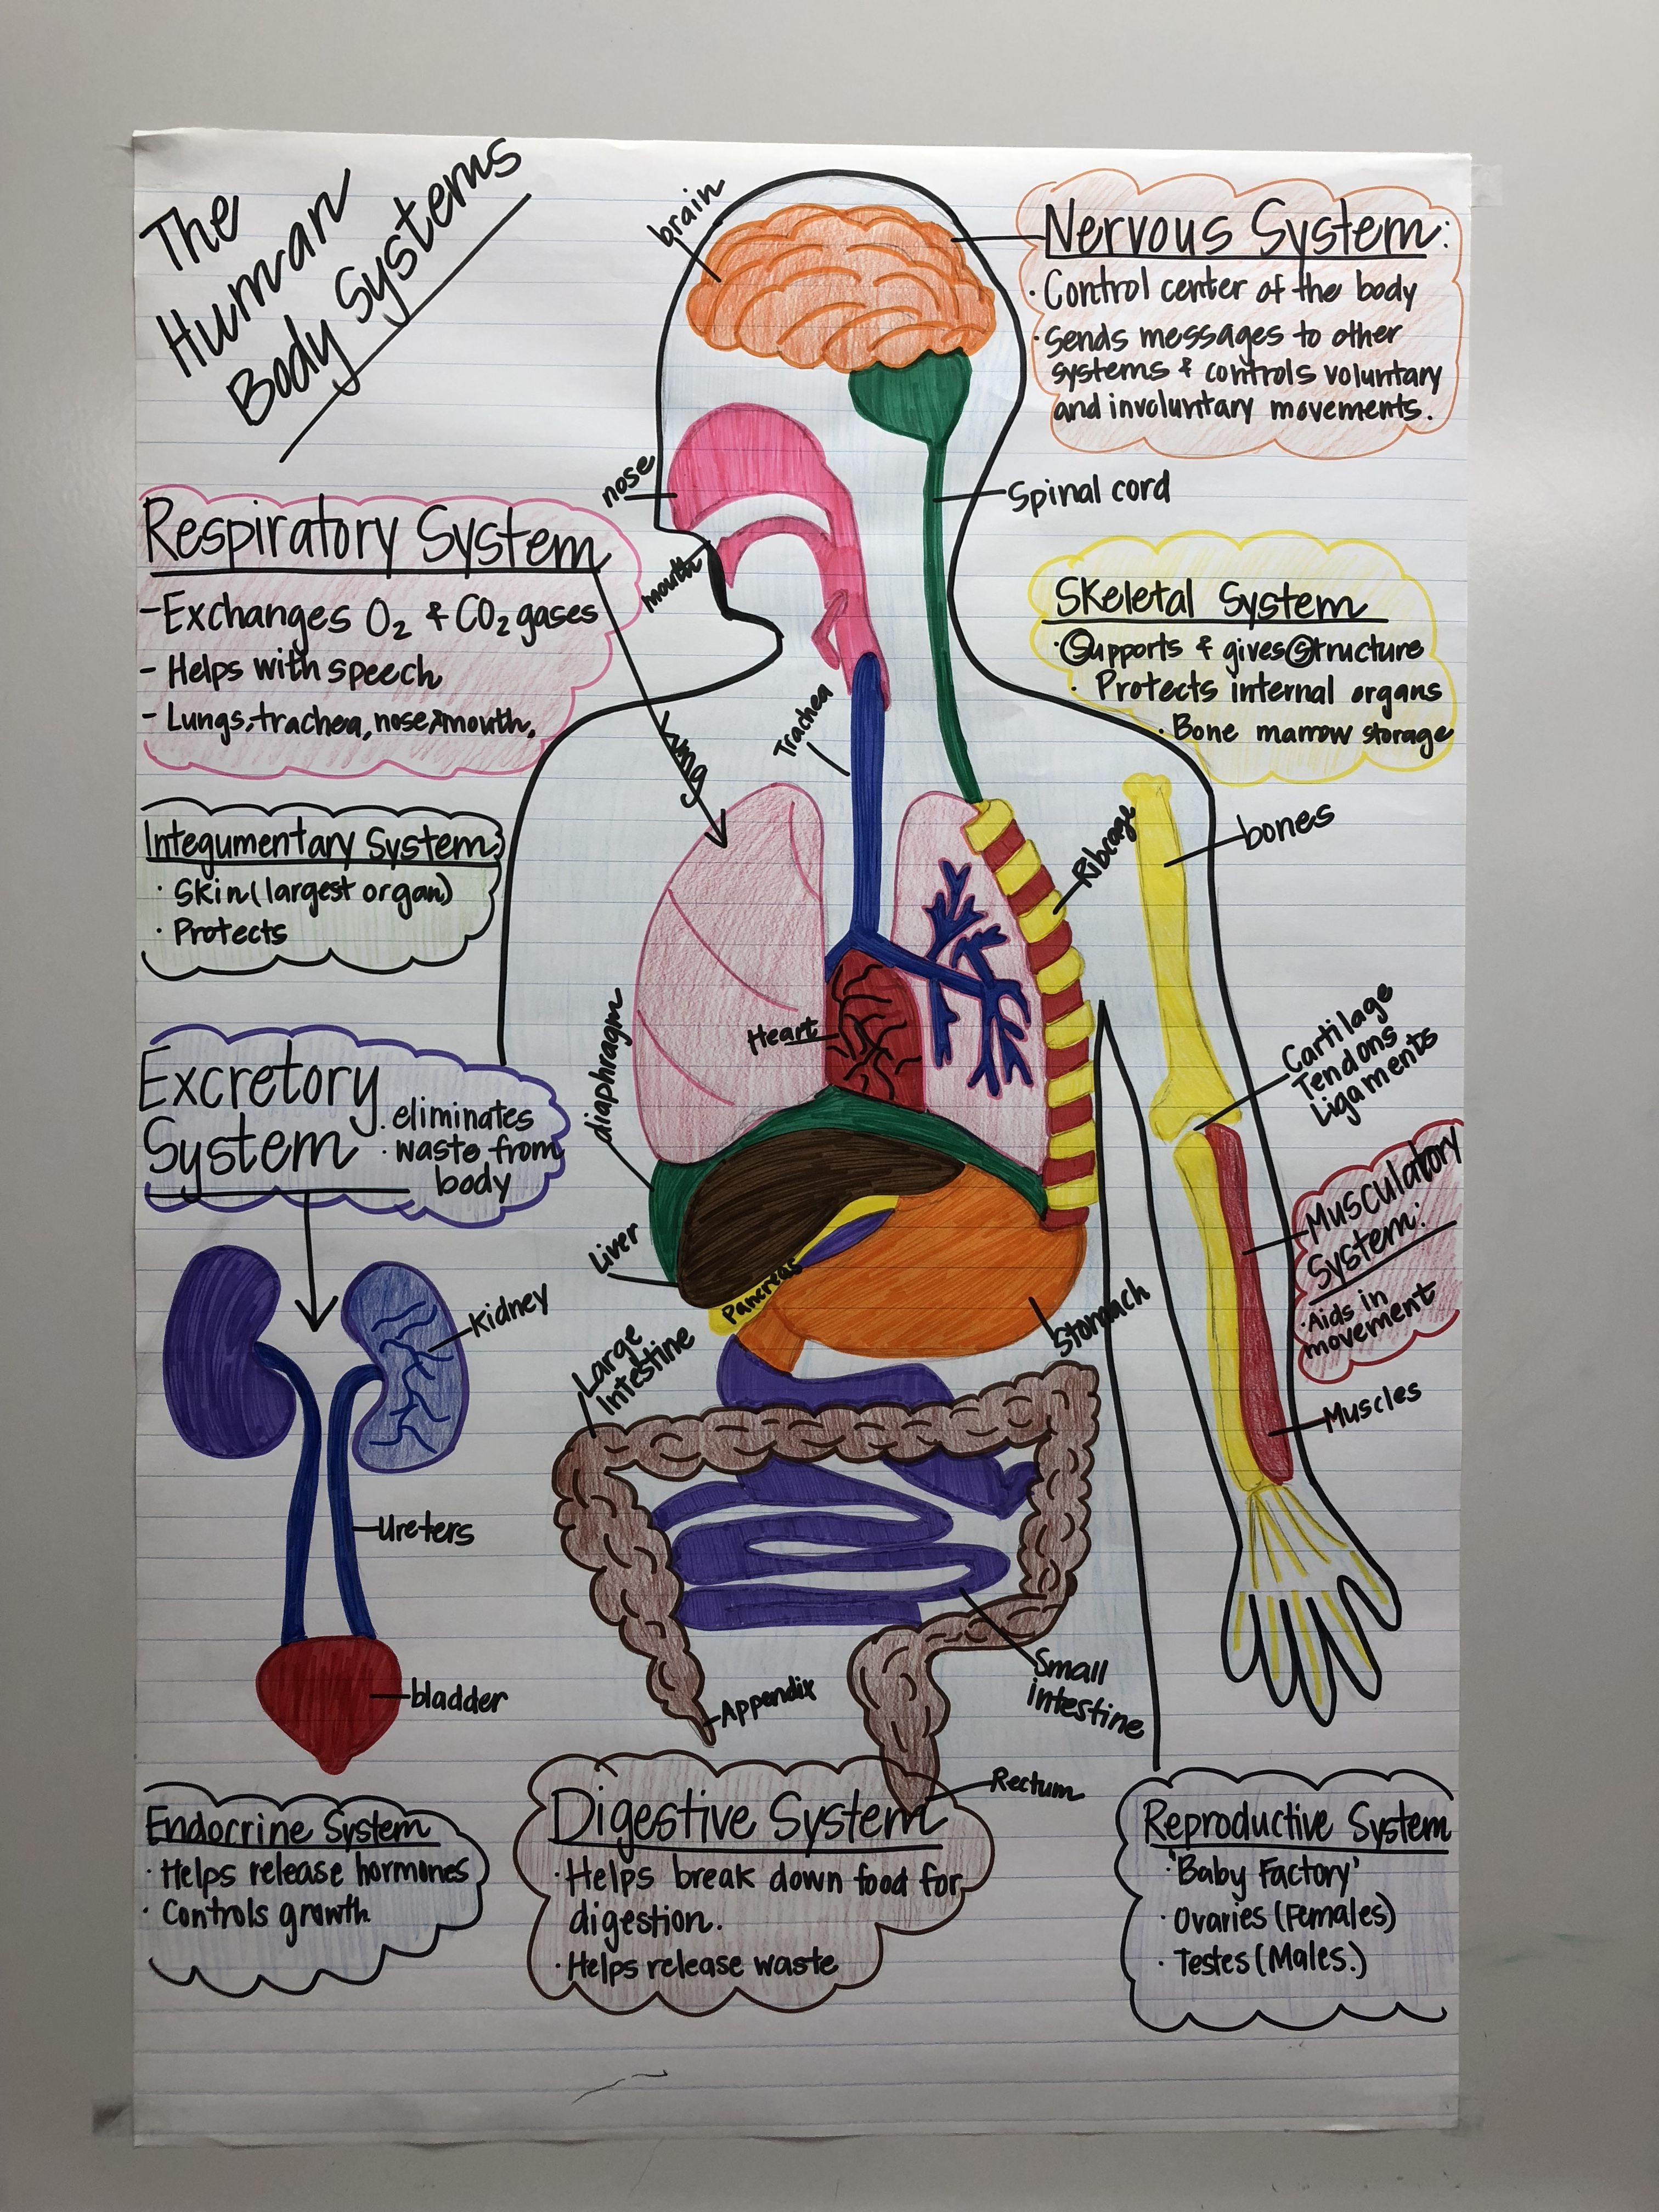 The
Human
Body Systems
brain
Nervous System:
· Control center of the body
· Sends messages to other
systems & controls voluntary
and involuntary movements.
nose
mouth
Spinal cord
Respiratory System
- Exchanges O₂ & CO₂ gases
- Helps with speech
- Lungs, trachea, nose, & mouth.
Skeletal System
· Supports & gives Structure
· Protects internal organs
· Bone marrow storage
Trachea
Lung
Ribcage
bones
Integumentary System
· Skin (largest organ)
· Protects
Heart
diaphragm
Cartilage
Tendons
Ligaments
Excretory
System
· eliminates
· waste from
body
Musculatory
System:
· Aids in
movement
Liver
Pancreas
Stomach
Kidney
Large
Intestine
Muscles
Ureters
Small
intestine
bladder
Appendix
Rectum
Endocrine System
· Helps release hormones
· Controls growth
Digestive System
· Helps break down food for
digestion.
· Helps release waste
Reproductive System
· 'Baby Factory'
· Ovaries (Females)
· Testes (Males.)